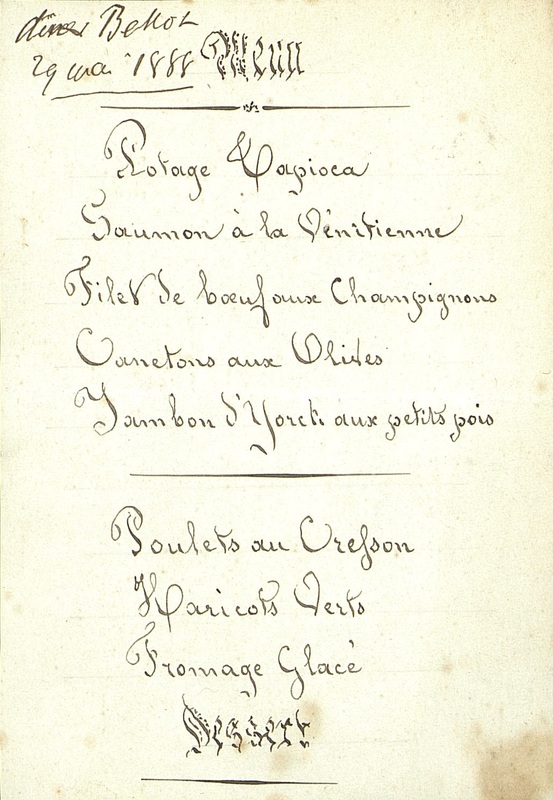 diner Bellot
29 mai 1888
Menu
Potage Tapioca
Saumon à la Vénitienne
Filet de bœuf aux Champignons
Canetons aux Olives
Jambon d'Yorck aux petits pois
Poulets au Cresson
Haricots Verts
Fromage Glacé
Dessert